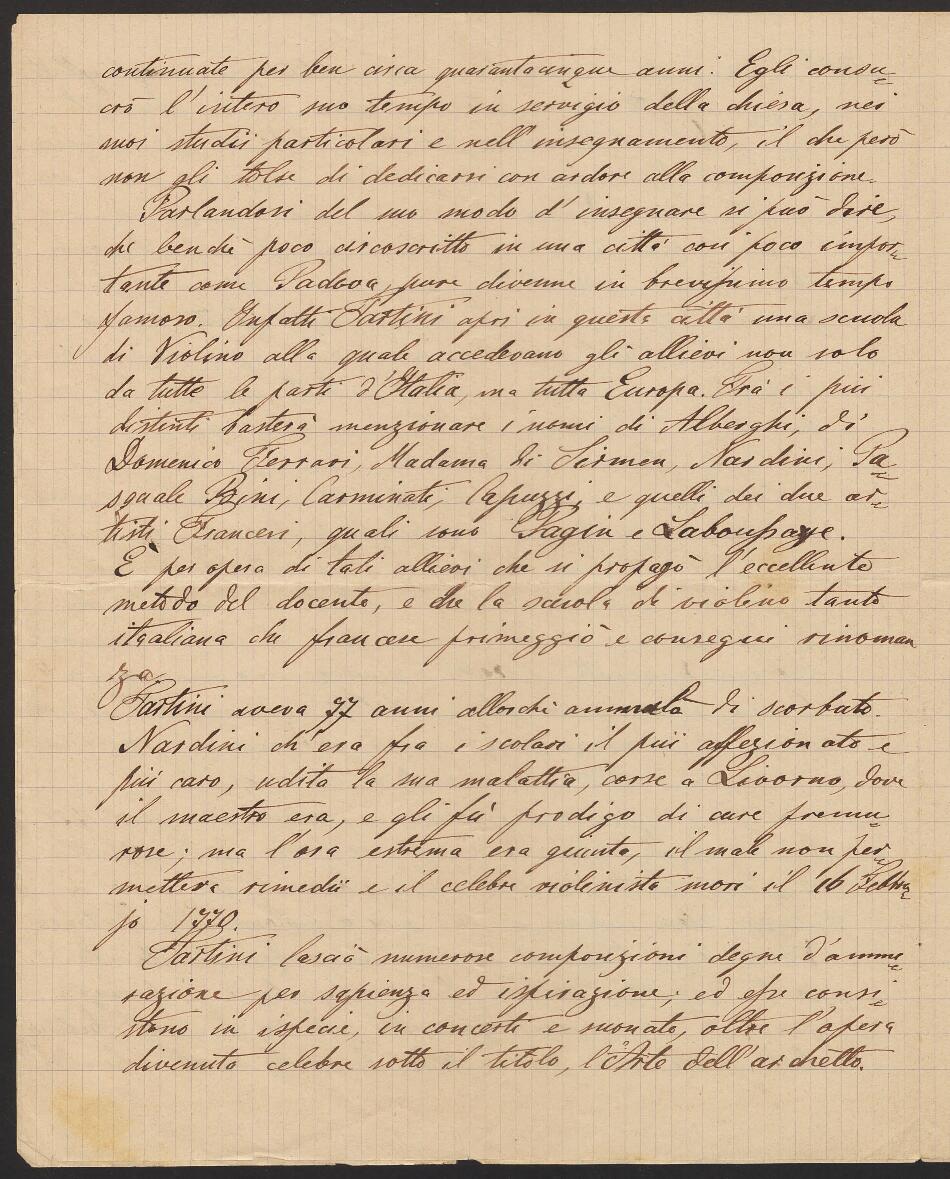 continuate per ben circa quarantacinque anni. Egli consa=
crò l'intero suo tempo in servigio della chiesa, nei
suoi studii particolari e nell'insegnamento, il che però
non gli tolse di dedicarsi con ardore alla composizione.
Parlandosi del suo modo d'insegnare si può dire,
che benchè poco circoscritto in una città così poco impor=
tante come Padova, pure divenne in brevissimo tempo
famoso. Infatti Tartini aprì in questa città una scuola
di Violino alla quale accedevano gli allievi non solo
da tutte le parti d'Italia, ma tutta Europa. Frà i più
distinti basterà menzionare i nomi di Alberghi, di
Domenico Ferrari, Madama di Sirmen, Nardini, Pa=
squale Bini, Carminati, Capuzzi, e quelli dei due ar=
tisti Francesi, quali sono Pagin e Laboussaye.
È per opera di tali allievi che si propagò l'eccellente
metodo del docente, e che la scuola di violino tanto
itagliana che francese primeggiò e conseguì rinoman
za.
Tartini aveva 77 anni allorchè ammalò di scorbuto.
Nardini ch'era fra i scolari il più affezionato e
più caro, udita la sua malattia, corse a Livorno, dove
il maestro era, e gli fù prodigo di cure premu=
rose; ma l'ora estrema era giunta, il male non per=
metteva rimedii e il celebre violinista morì il 16 Febbra=
jo 1770.
Tartini lasciò numerose composizioni degne d'ammi=
razione per sapienza ed ispirazione; ed esse consi=
stono in ispecie, in concerti e suonate, oltre l'opera
divenuta celebre sotto il titolo, l'Arte dell'archetto.